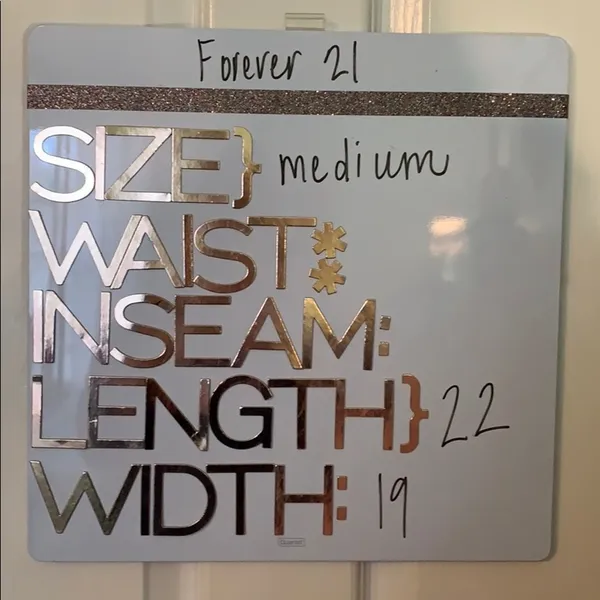 Forever 21
SIZE} medium
WAIST:
INSEAM:
LENGTH} 22
WIDTH: 19